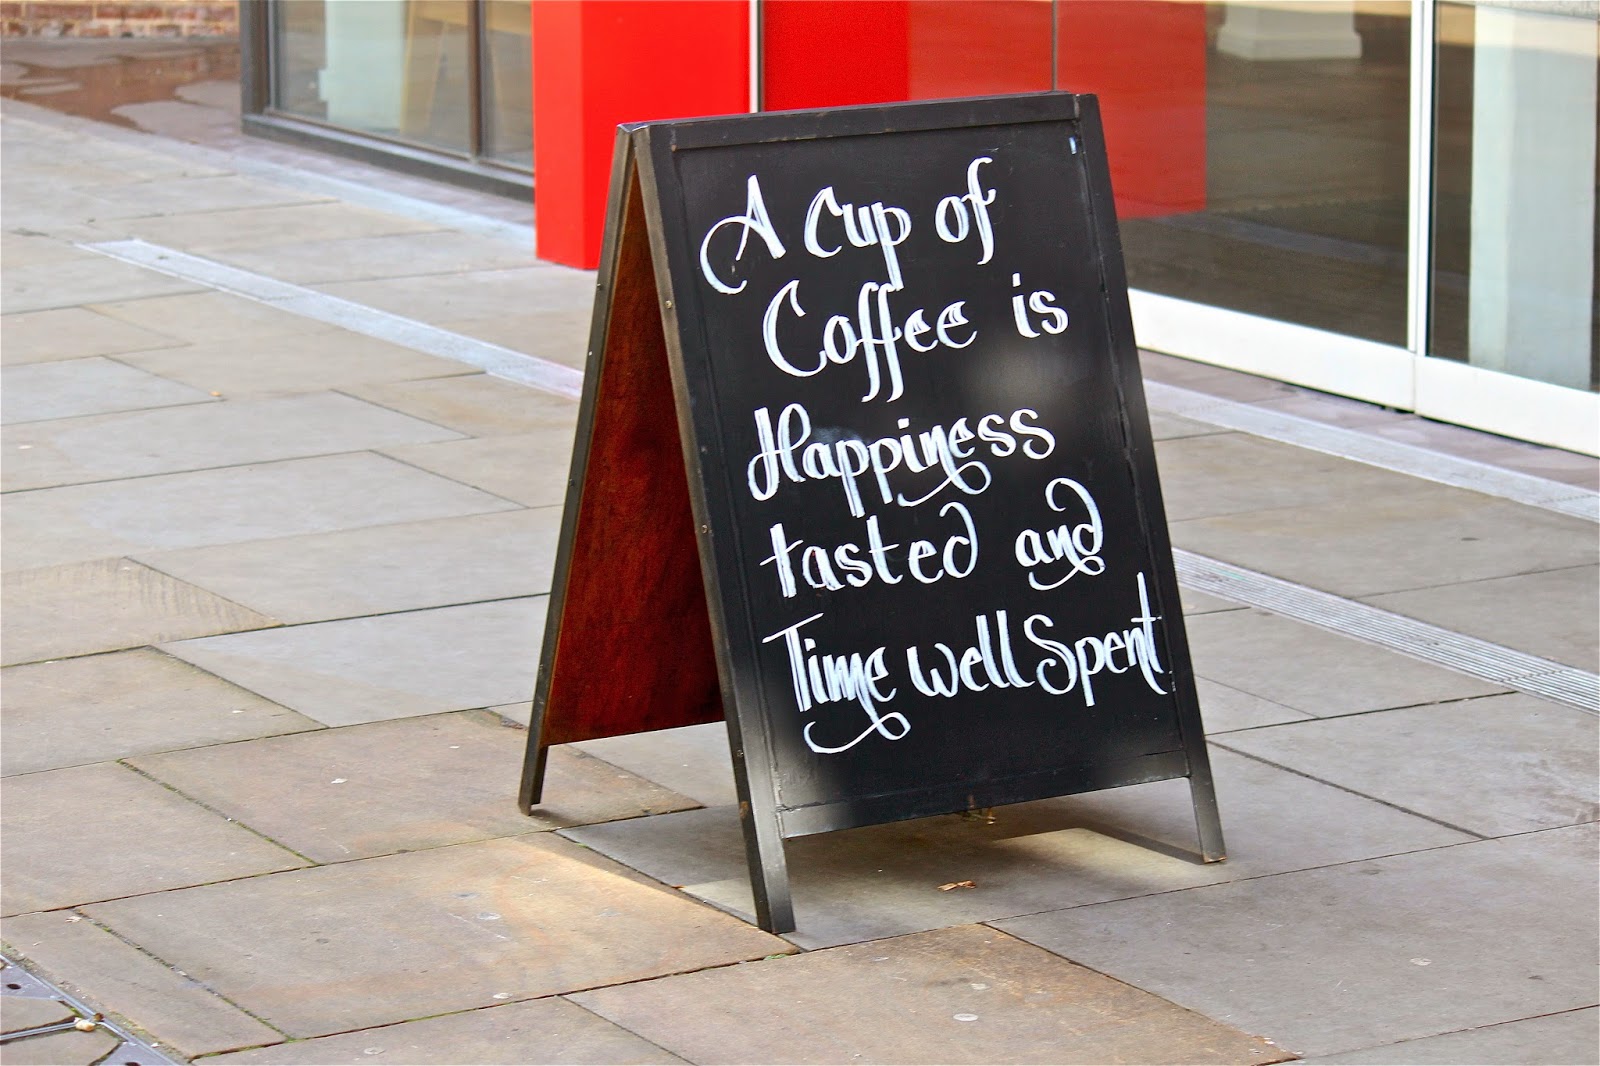 A Cup of
Coffee is
Happiness
tasted and
Time well Spent